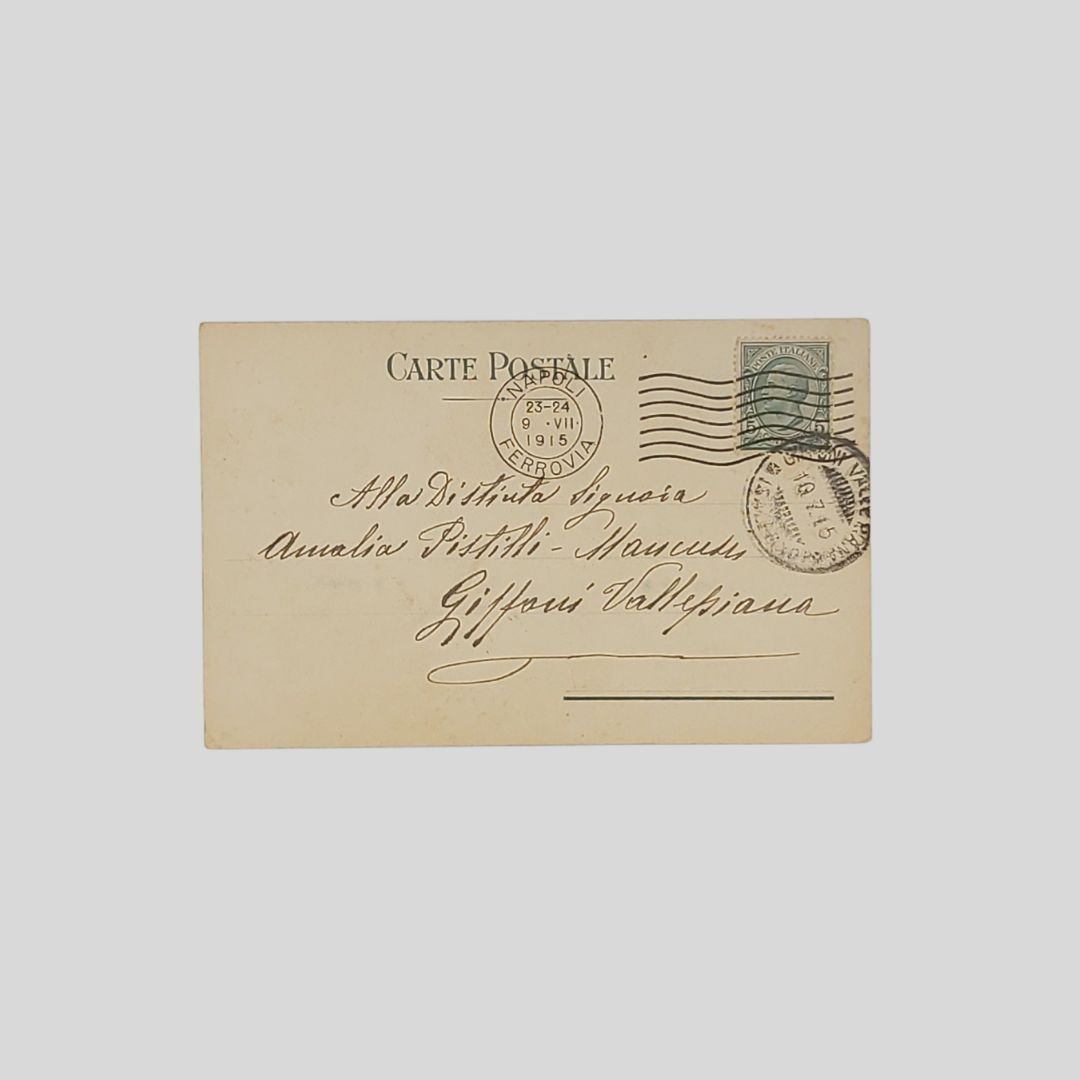 CARTE POSTALE
POSTE ITALIANE
5 5
NAPOLI
23-24
9 · VII ·
1915
FERROVIA
10.7.15
Alla Distinta Signora
Amalia Pistilli - Mancuso
Giffoni Vallepiana